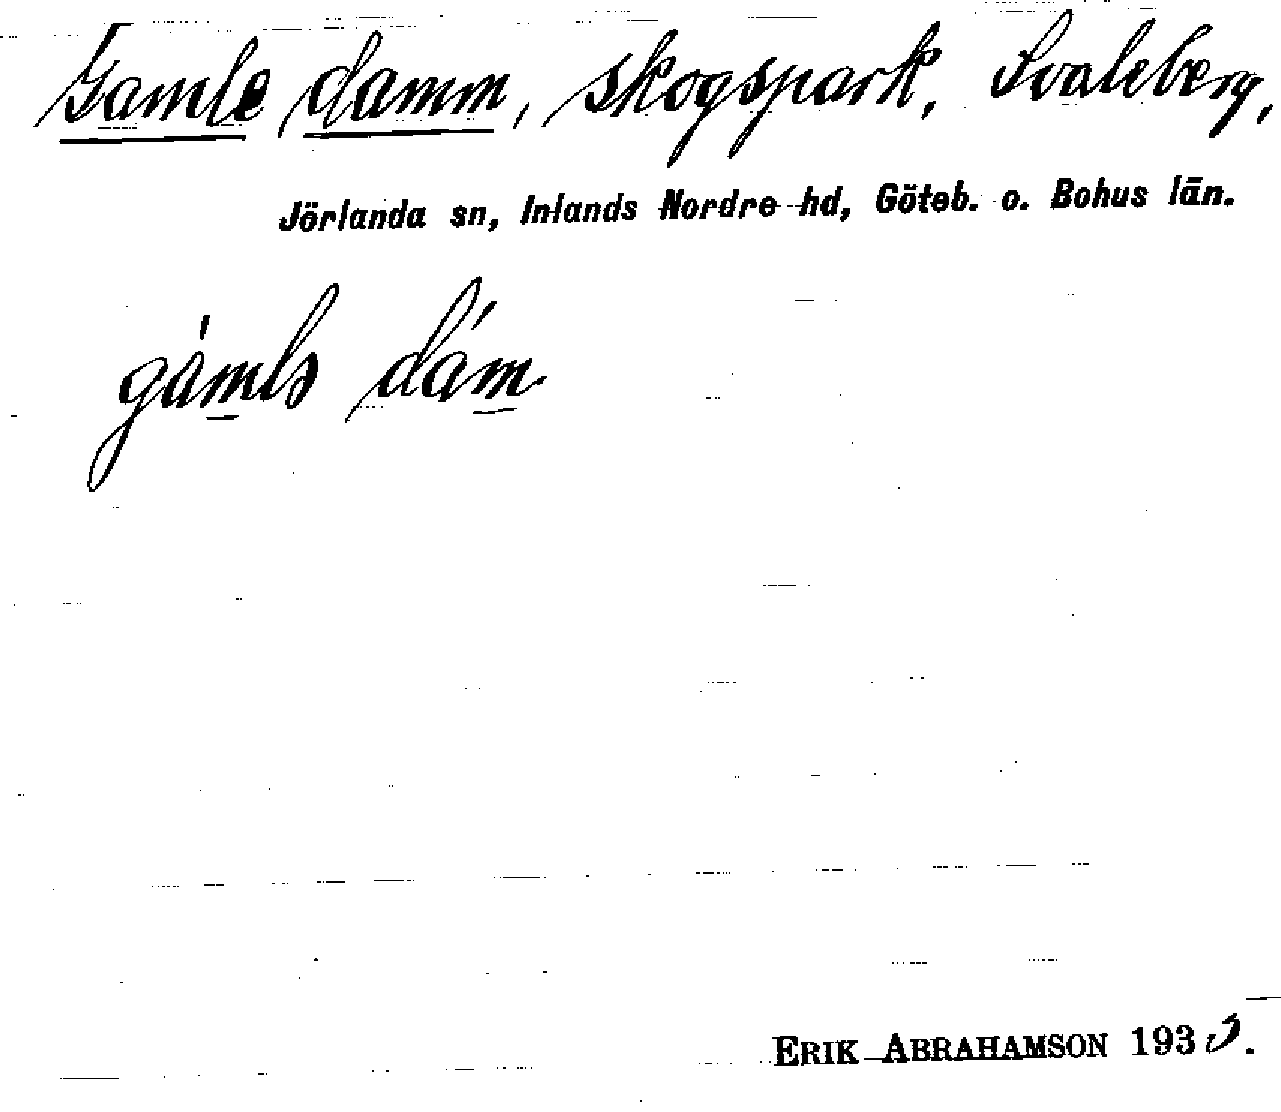 Gamle damm, skogspark, Svaleberg,
Jörlanda sn, Inlands Nordre hd, Göteb. o. Bohus län.
gámlə dám
ERIK ABRAHAMSON 1933.